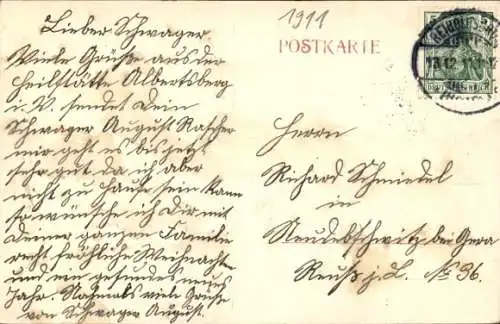 Lieber Schwager
Viele Grüße aus der
Heilstätte Albertsberg
i. V. sendet Dein
Schwager August Rascher
mir geht es bis jetzt
sehr gut da ich aber
nicht zu Hause sein kann
so wünsche ich Dir mit
Deiner ganzen Familie
recht fröhliche Weihnachten
und ein gesundes neues
Jahr. Nochmals viele Grüße
von Schwager August.
1911
POSTKARTE
13.12.11
Herrn
Richard Schmiedel
in
Neudebschwitz bei Gera
Reuß j. L. No 36.